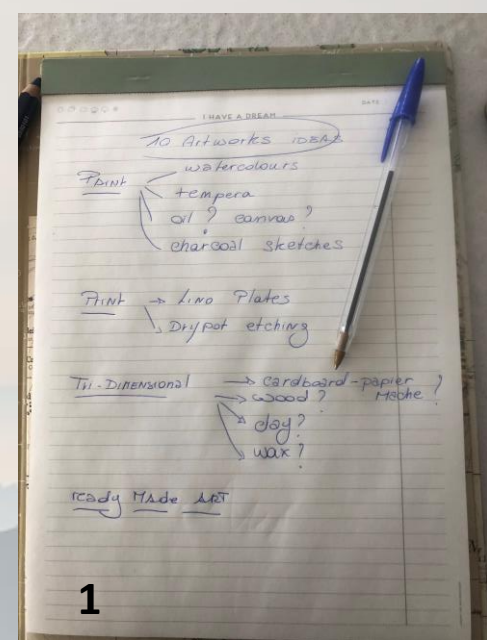 I HAVE A DREAM
DATE
10 Artworks IDEAS
PAINT
watercolours
tempera
oil? canvas?
charcoal sketches
PRINT → Lino Plates
Drypot etching
Tri-Dimensional → cardboard-papier Mache?
→ wood?
clay?
wax?
ready MAde ART
1